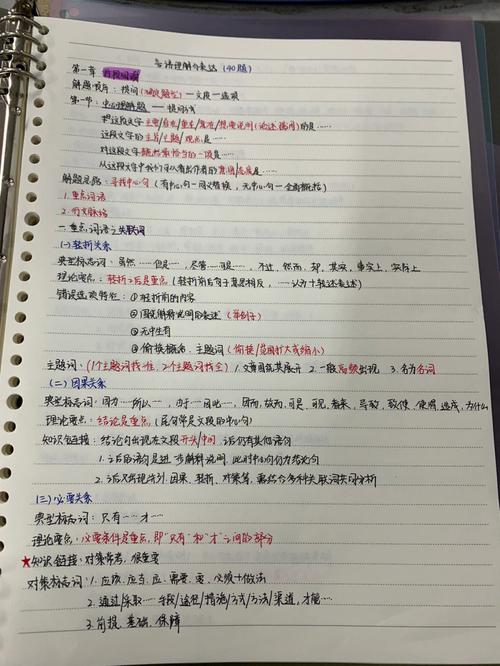 言语理解与表达（40题）
第一章 片段阅读
解题顺序：提问（确定题型）—文段—选项
第一节：中心理解题 — 提问方式
把这段文字主要/旨在/重在/意在/想要说明（论述、强调）的是……
这段文字的主旨/主题/观点是……
对这段文字概括最恰当的一项是……
从这段文字中我们可以看出作者的意图/态度是……
解题思路：寻找中心句（有中心句—同义替换，无中心句—全面概括）
1. 重点词语
2. 行文脉络
一、重点词语之关联词
(一) 转折关系
典型标志词：虽然……但是……，尽管……可是……，不过，然而，却，其实，事实上，实际上
理论要点：转折之后是重点（转折前后句子意思相反，……认为+转述表述）
错误选项特征：① 转折前的内容
② 因果解释说明的表述（举例子）
③ 无中生有
④ 偷换概念、主题词（偷换/范围扩大或缩小）
主题词：（1个主题词找唯，2个主题词找全）1. 文章围绕其展开 2. 一般高频出现 3. 多为名词
（二）因果关系
典型标志词：因为……所以……，由于……因此……，因而，故而，可是，可见，看来，导致，致使，使得，造成，为什么
理论要点：结论是重点（尾句常是文段的中心句）
知识链接：结论句出现在文段开头/中间，之后仍有其他语句
1. 之后的语句是进一步解释说明，此时中心句仍为结论句
2. 之后又出现并列、因果、转折、对策等，需结合多种关联词共同分析
(三) 必要关系
典型标志词：只有……才……
理论要点：必要条件是重点，即"只有"和"才"之间的部分
★知识链接：对策常考，很重要
对策标志词：1. 应该、应当、应、需要、要、必须+做法
2. 通过/采取……手段/途径/措施/方式/方法/渠道，才能…
3. 前提、基础、保障